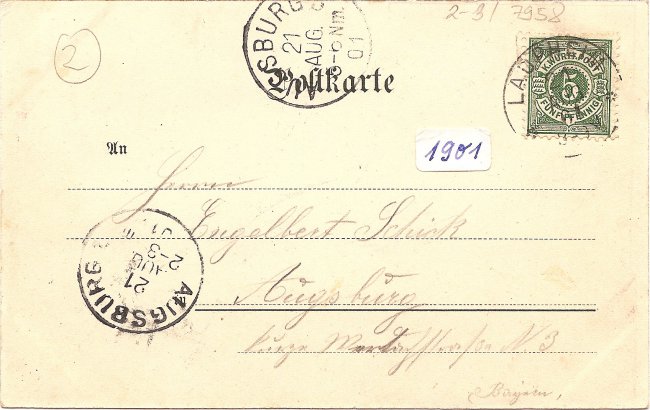 2
2-3/7958
SBURG
21
AUG.
5-6 Nm
01
Postkarte
LAUPHEIM
K. WÜRTT. POST
5
FÜNF PFENNIG
An
1901
Herrn
Engelbert Schick
AUGSBURG
21
AUG
Augsburg
kurze Wertachstraße N 3
Bayern,